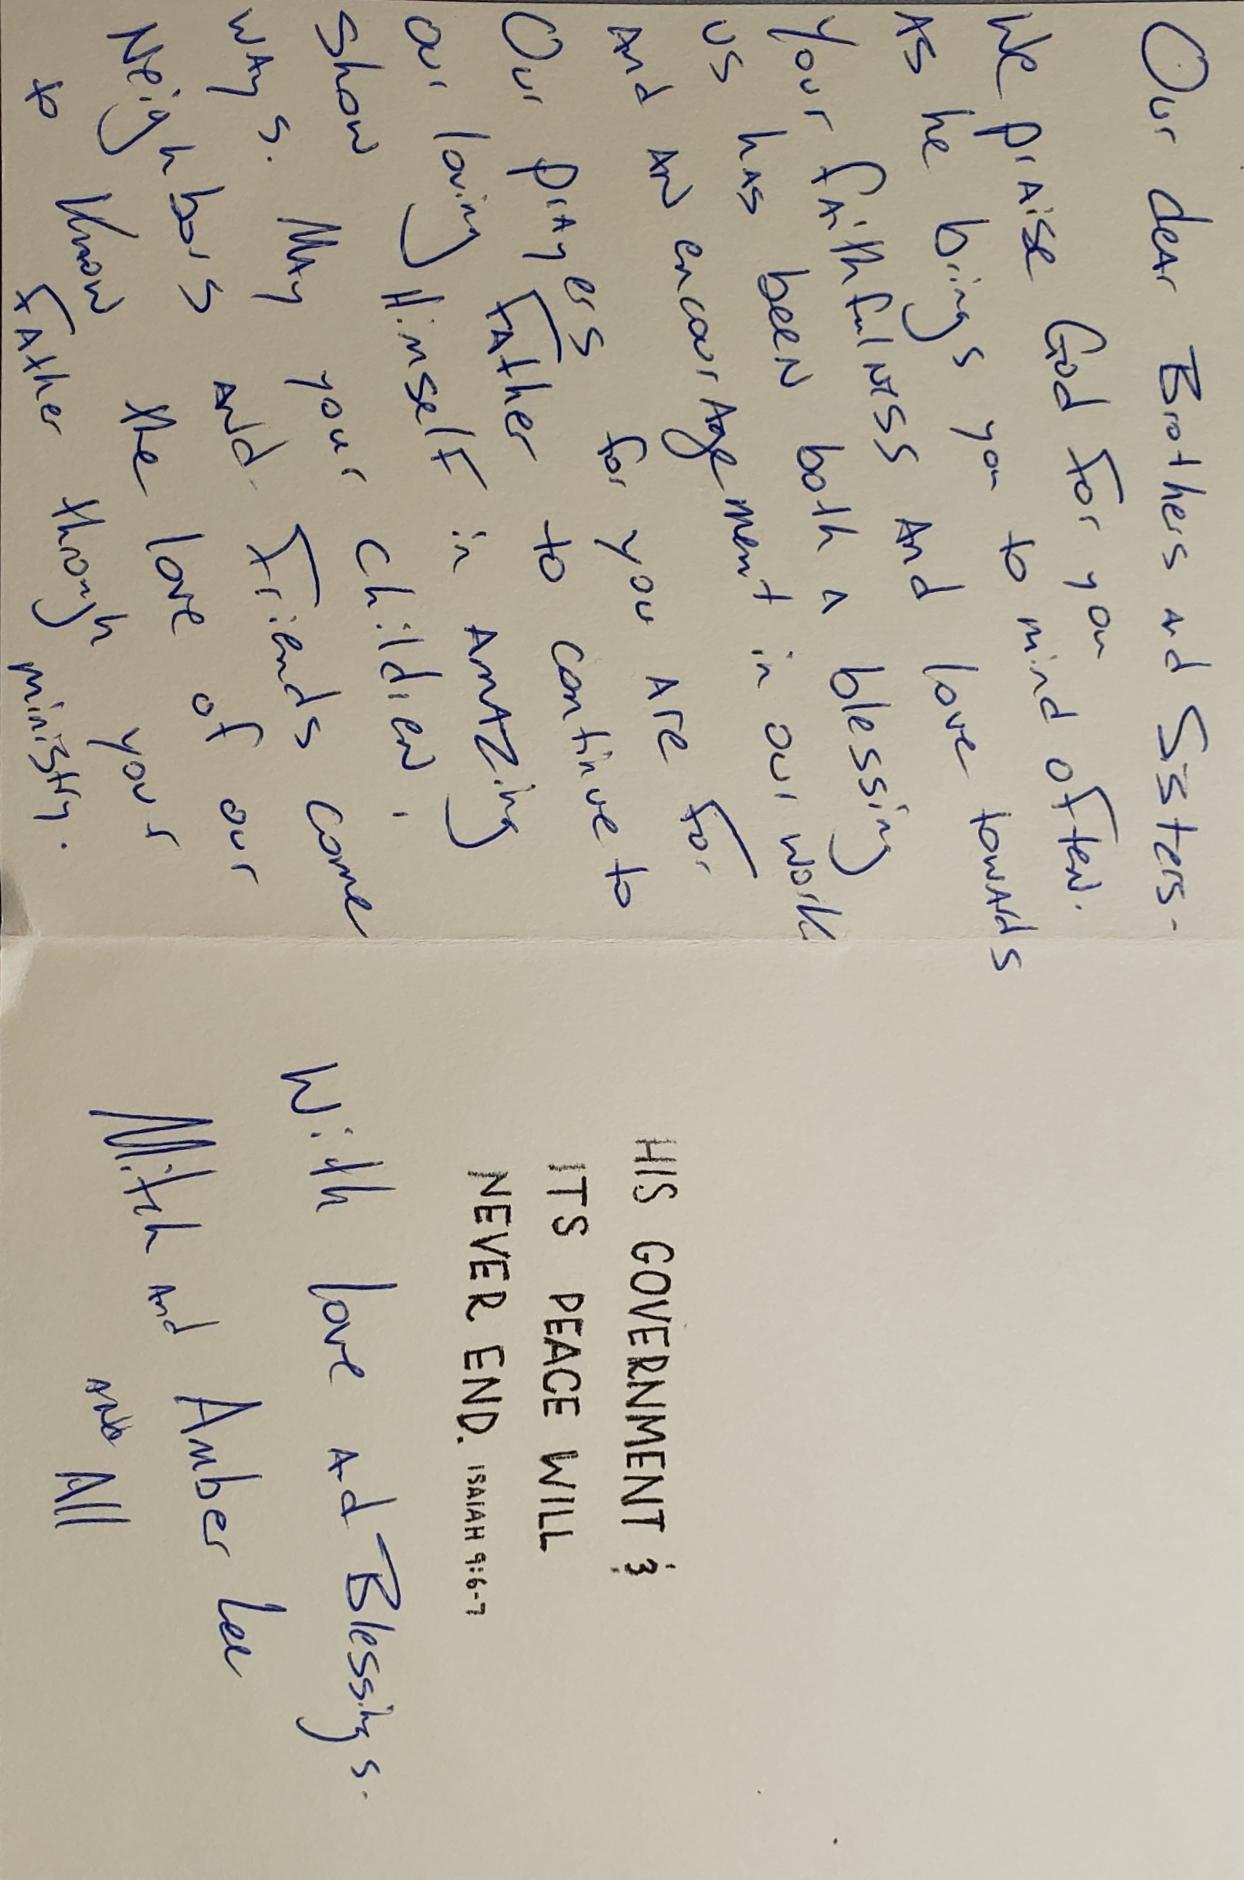 Our dear Brothers and Sisters-
We praise God for you
as he brings you to mind often.
Your faithfulness and love towards
us has been both a blessing
and an encouragement in our work
Our prayers for you are for
our loving Father to continue to
show Himself in amazing
ways. May your children,
Neighbors and Friends come
to know the love of our
Father through your
ministry.
HIS GOVERNMENT &
ITS PEACE WILL
NEVER END. ISAIAH 9:6-7
With love and Blessings.
Mitch and Amber Lee
and All